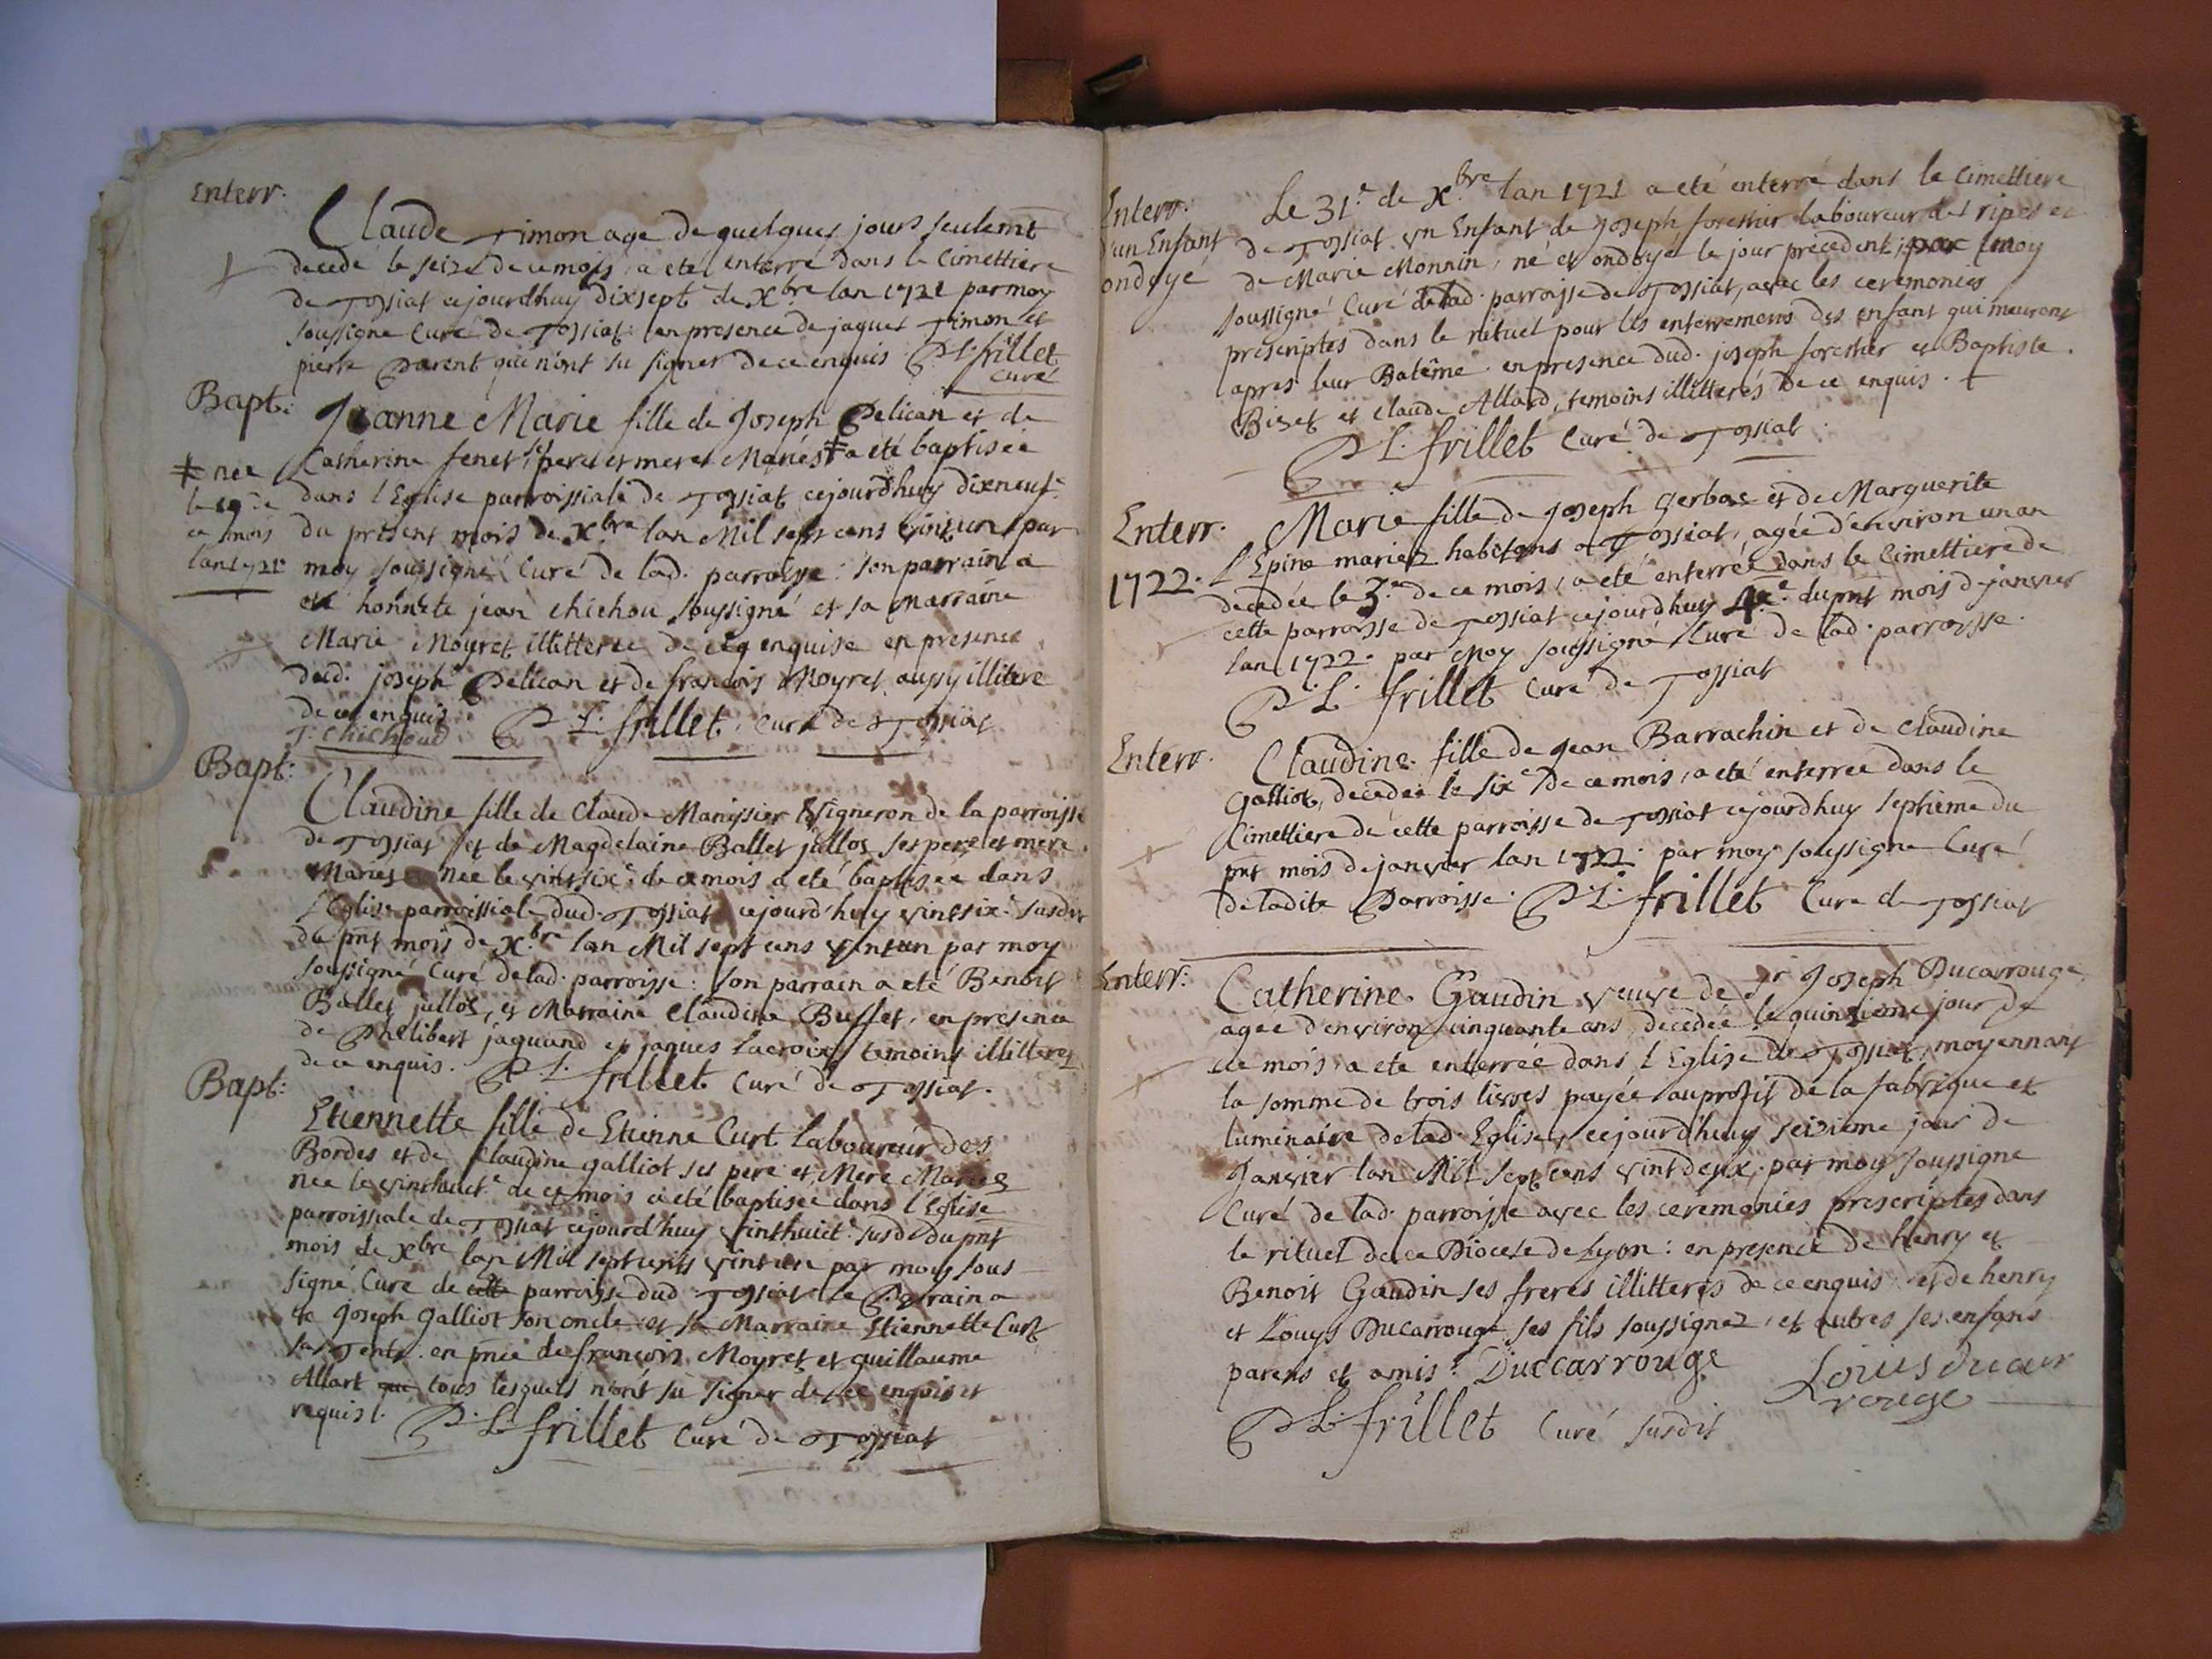 Enterr.
Claude Timon age de quelques jours seulemt
decede le seize de ce mois, a eté enterré dans le Cimettiere
de Tossiat cejourdhuy dixsept.e de Xbre lan 1721 par moy
soussigne Curé de Tossiat: en presence de jaques Timon et
pierre parent qui n'ont su signer de ce enquis P L. frillet
curé
Bapt:
Jeanne Marie fille de Joseph Pelican et de
Catherine fenet ses pere et mere Mariés ǂ a eté baptisée
ǂ nee
le 19e de
ce mois
lan 1721
dans l'Eglise parroissiale de Tossiat cejourdhuy dixneuf.e
du present mois de Xbre lan Mil sept cens vint un par
moy soussigné Curé de lad. parroisse: son parrain a
eté honnete jean chichou soussigné et sa marraine
Marie Moyret illitterée de ce enquise en presence
dud. joseph Pelican et de francois Moyret aussy illiteré
de ce enquis
J. Chichoud P L. frillet, curé de Tossiat
Bapt:
Claudine fille de Claude Manissier Vigneron de la parroisse
de Tossiat et de Magdelaine Ballet jullos ses pere et mere
Mariez nee le vint six.e de ce mois a eté baptisée dans
l'Eglise parroissiale dud. Tossiat cejourd'huy vint six.e susdit
du pnt mois de Xbre lan Mil sept cens vint un par moy
soussigné Curé de lad. parroisse: son parrain a eté Benoit
Ballet jullos, et Marraine Claudine Buffet, en presence
de Philibert jaquand et jaques lacroix temoins illitterez
de ce enquis. P L. frillet Curé de Tossiat.
Bapt:
Etiennette fille de Etienne Curt laboureur des
Bordes et de Claudine galliot ses pere et Mere Mariez
née le vint huict.e de ce mois a eté baptisée dans l'Eglise
parroissiale de Tossiat cejourd'huy vint huict.e susd. du pnt
mois de Xbre lan Mil sept cents vint un par moy sous
signé Curé de cette parroisse dud. Tossiat le Parrain a
ete Joseph Galliot son oncle et sa Marraine Etiennette Curt
sa Tente. en pnce de francois Moyret et guillaume
Allart que tous lesquels n'ont su signer de ce enquis et
requis. P. L. frillet Curé de Tossiat
Enterr.
d'un Enfant
ondoyé
Le 31.e de Xbre lan 1721 a eté enterré dans le Cimettiere
de Tossiat un Enfant de Joseph forestier laboureur des ripes et
de Marie Monnin, né et ondoyé le jour precedent, par moy
soussigné Curé de lad. parroisse de Tossiat, avec les ceremonies
prescriptes dans le rituel pour les enterremens des enfant qui meurent
apres leur Batême. en presence dud. joseph forestier et Baptiste
Bizet et claude Allard, temoins illitterés de ce enquis.
P L. frillet Curé de Tossiat
Enterr.
1722.
Marie fille de Joseph Gerbas et de Marguerite
l'Epine mariez habitans a Tossiat, agée d'environ un an
decedée le 3.e de ce mois, a eté enterrée dans le Cimettiere de
cette parroisse de Tossiat cejourdhuy 4.e du pnt mois de janvier
lan 1722. par Moy soussigné Curé de lad. parroisse.
P. L. frillet Curé de Tossiat
Enterr.
Claudine fille de jean Barrachin et de Claudine
Galliot, decedée le six.e de ce mois, a eté enterree dans le
Cimettiere de cette parroisse de Tossiat cejourdhuy septieme du
pnt mois de janvier lan 1722. par moy soussigne Curé
de ladite Parroisse. P. L. frillet Curé de Tossiat
Enterr:
Catherine Gaudin veuve de Sr Joseph Ducarrouge
agée d'environ cinquante ans, decedée le quinzieme jour de
ce mois, a ete enterrée dans l'Eglise de Tossiat, moyennant
la somme de trois livres payée au profit de la fabrique et
luminaire de lad. Eglise, cejourd'huy seizieme jour de
Janvier lan Mil sept cens vint deux. par moy soussigne
Curé de lad. parroisse avec les ceremonies prescriptes dans
le rituel de ce Diocese de Lyon: en presence de henry et
Benoit Gaudin ses freres illitterés de ce enquis, et de henry
et Louys Ducarrouge ses fils soussignez, et autres ses enfans
parens et amis. Duccarrouge Louis ducar
rouge
P L. frillet Curé susdit